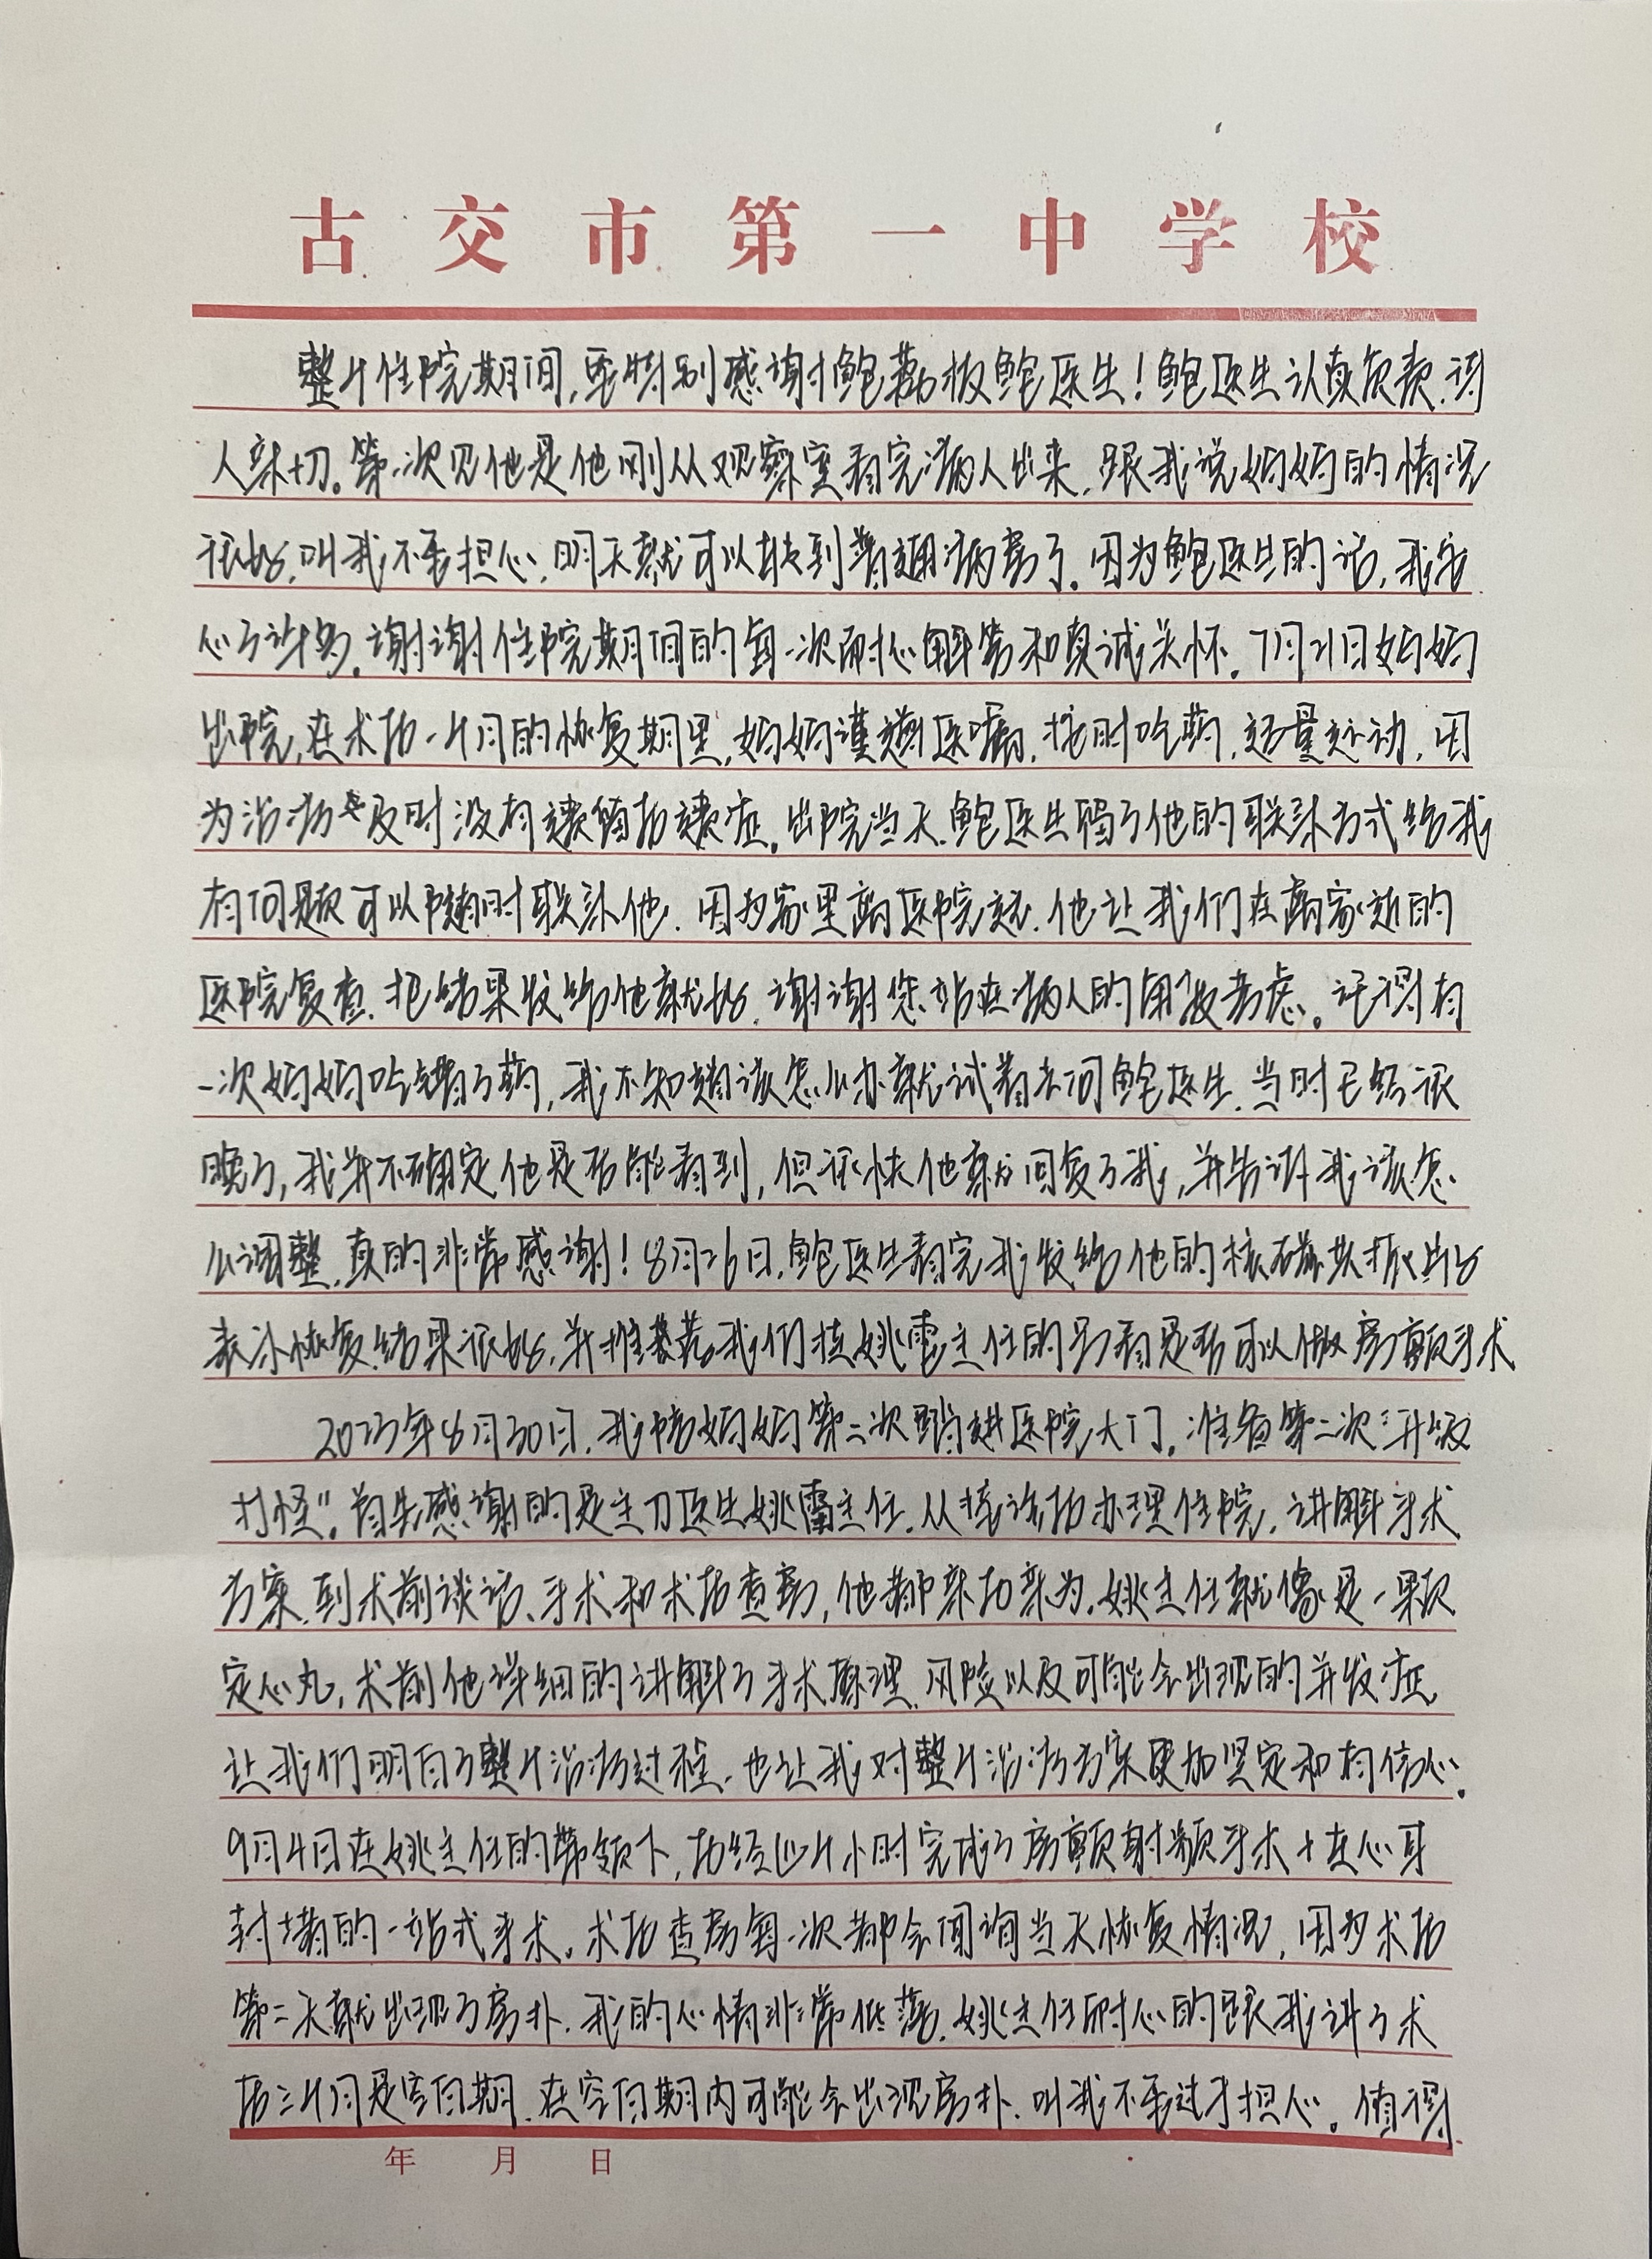 古交市第一中学校
整个住院期间,要特别感谢鲍慕扬鲍医生!鲍医生认真负责.待
人亲切。第一次见他是他刚从观察室看完病人出来,跟我说妈妈的情况
很好,叫我不要担心,明天就可以转到普通病房了。因为鲍医生的话,我安
心了许多。谢谢住院期间的每一次耐心解答和真诚关怀。7月21日妈妈
出院,在术后一个月的恢复期里,妈妈谨遵医嘱,按时吃药,适量运动,因
为治疗及时没有遗留后遗症。出院当天,鲍医生留了他的联系方式给我
有问题可以随时联系他.因为家里离医院远.他让我们在离家近的
医院复查.把结果发给他就好.谢谢您站在病人的角度考虑。记得有
一次妈妈吃错了药,我不知道该怎么办就试着去问鲍医生.当时已经很
晚了,我并不确定他是否能看到,但很快他就回复了我,并告诉我该怎
么调整.真的非常感谢!8月26日,鲍医生看完我发给他的核磁共振片后
表示恢复结果很好,并推荐我们挂姚雷主任的号看是否可以做房颤手术
2023年8月30日,我陪妈妈第二次踏进医院大门,准备第二次“升级
打怪”。首先感谢的是主刀医生姚雷主任.从接诊后办理住院,讲解手术
方案,到术前谈话、手术和术后查房,他都亲力亲为.姚主任就像是一颗
定心丸,术前他详细的讲解了手术原理、风险以及可能会出现的并发症,
让我们明白了整个治疗过程,也让我对整个治疗方案更加坚定和有信心.
9月4日在姚主任的带领下,历经四个小时完成了房颤射频手术+左心耳
封堵的一站式手术。术后查房每一次都会问询当天恢复情况,因为术后
第二天就出现了房扑,我的心情非常低落,姚主任耐心的跟我讲了术
后三个月是空白期,在空白期内可能会出现房扑,叫我不要过于担心。值得
年 月 日